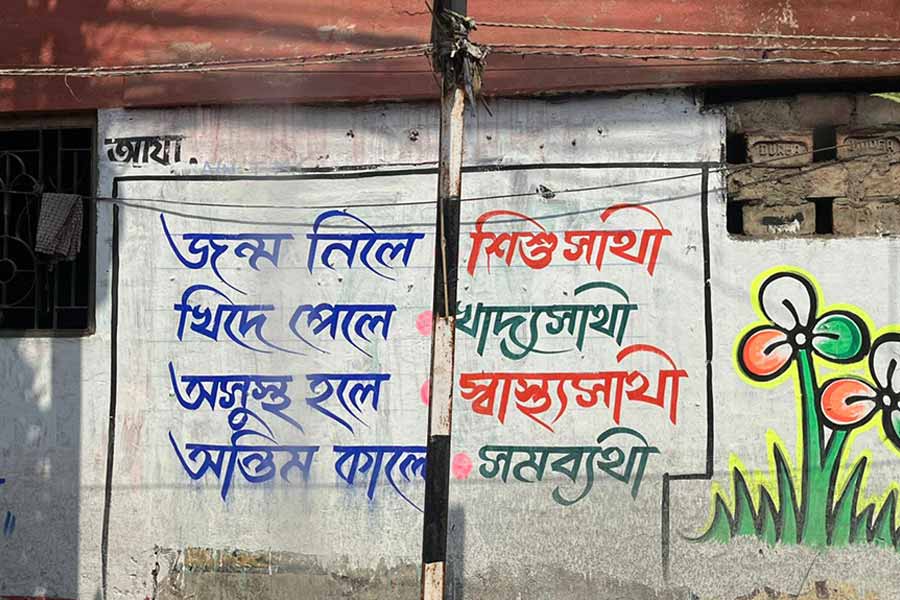 আযা.
জন্ম নিলে শিশুসাথী
খিদে পেলে খাদ্যসাথী
অসুস্থ হলে স্বাস্থ্যসাথী
অন্তিম কালে সমব্যথী